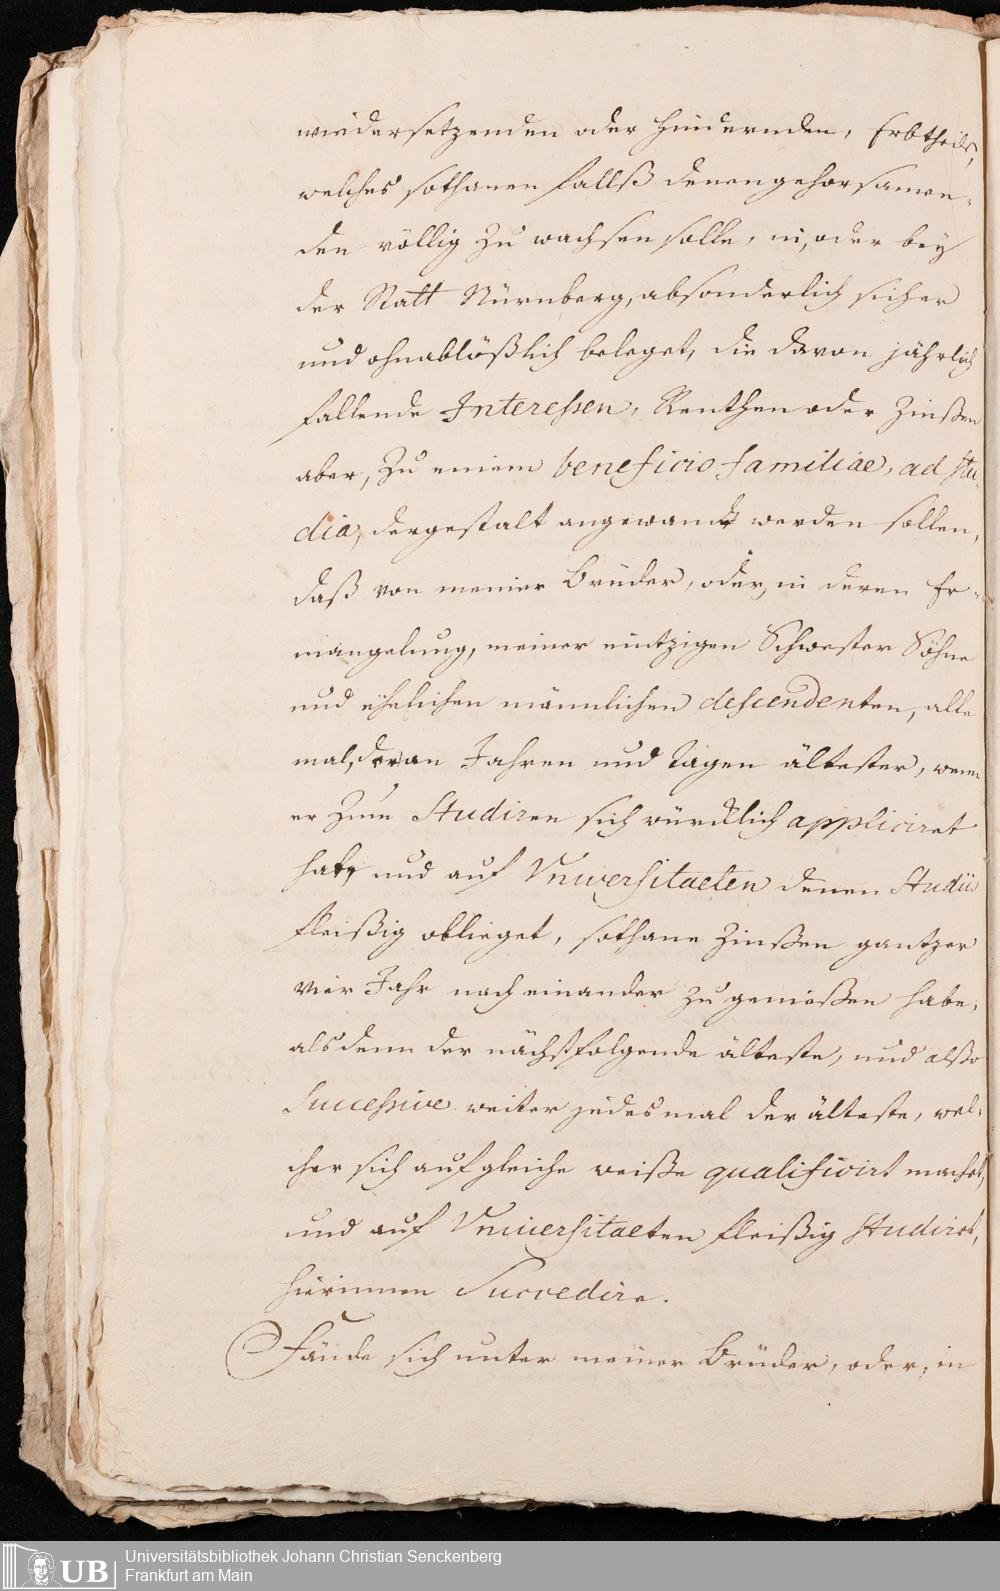 wiedersetzenden oder hindernden, Erbtheils,
welches sothanen fallß denen gehorsamen-
den völlig zu wachsen solle, in, oder bey
der Statt Nürnberg, absonderlich sicher
und ohnablößlich beleget, die davon jährlich
fallende Interessen, Renthen oder Zinßen
aber, zu einem beneficio familiae, ad stu-
dia, dergestalt angewandt werden sollen,
daß von meiner Brüder, oder, in deren Er-
mangelung, meiner eintzigen Schwester Söhne
und ehelichen männlichen descendenten, alle
mal, der an Jahren und Tagen ältester, wenn
er zum Studiren sich würcklich appliciret
hat, und auf Universitaeten denen Studiis
fleißig oblieget, sothane Zinßen gantzer
vier Jahr nach einander zu genießen habe,
alsdenn der nächstfolgende älteste, und alßo
Successive weiter jedesmal der älteste, wel-
cher sich auf gleiche weiße qualificirt machet,
und auf Universitaeten fleißig Studiret,
hierinnen Succedire.
Fände sich unter meiner Brüder, oder, in
Universitätsbibliothek Johann Christian Senckenberg
Frankfurt am Main
UB